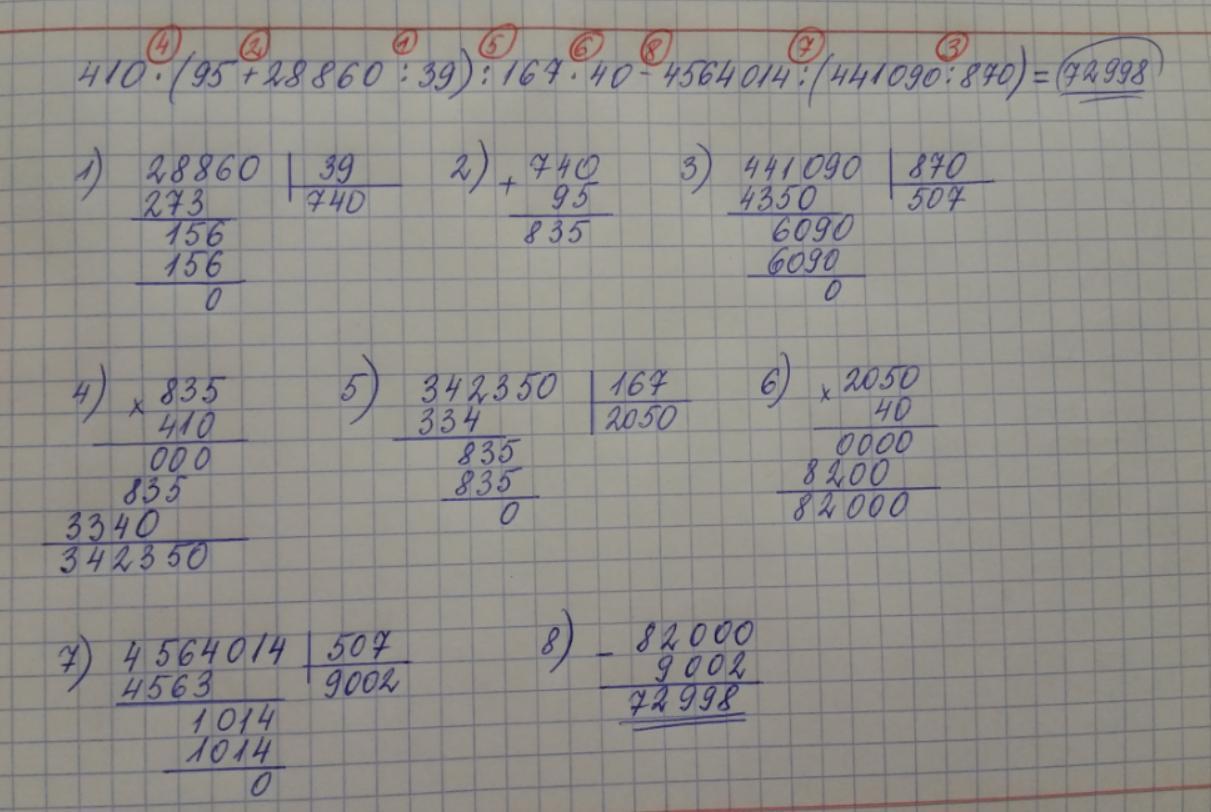 4 2 1 5 6 8 7 3
410·(95+28860:39):167·40-4564014:(441090:870)=72998
1) 28860 39
273 740
156
156
0
2) + 740
95
835
3) 441090 870
4350 507
6090
6090
0
4) × 835
410
000
835
3340
342350
5) 342350 167
334 2050
835
835
0
6) × 2050
40
0000
8200
82000
7) 4564014 507
4563 9002
1014
1014
0
8) - 82000
9002
72998